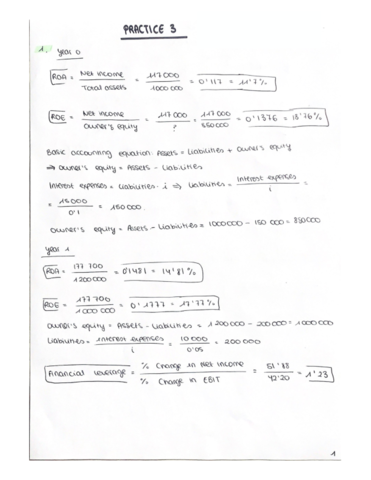 PRACTICE 3
1. year 0
ROA = Net income / Total assets = 117 000 / 1 000 000 = 0'117 = 11'7%
ROE = Net income / Owner's equity = 117 000 / ? = 117 000 / 850 000 = 0'1376 = 13'76%
Basic accounting equation: Assets = Liabilities + Owner's equity
⇒ Owner's equity = Assets - Liabilities
Interest expenses = Liabilities · i ⇒ Liabilities = Interest expenses / i =
= 15 000 / 0'1 = 150 000.
Owner's equity = Assets - Liabilities = 1 000 000 - 150 000 = 850 000
year 1
ROA = 177 700 / 1 200 000 = 0'1481 = 14'81%
ROE = 177 700 / 1 000 000 = 0'1777 = 17'77%
Owner's equity = Assets - Liabilities = 1 200 000 - 200 000 = 1 000 000
Liabilities = Interest expenses / i = 10 000 / 0'05 = 200 000
Financial Leverage = % Change in Net Income / % Change in EBIT = 51'88 / 42'20 = 1'23
1